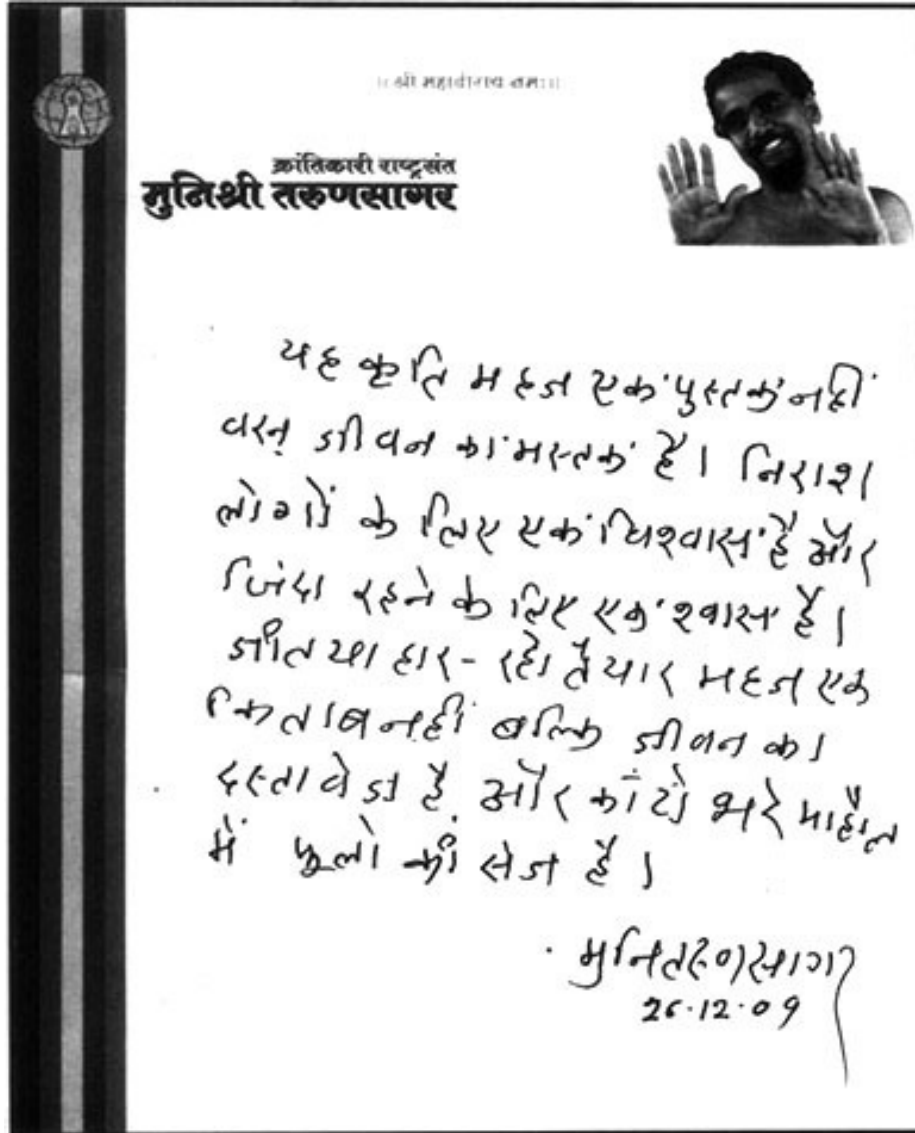 ।। श्री महावीराय नमः ।।
क्रांतिकारी राष्ट्रसंत
मुनिश्री तरुणसागर
यह कृति महज एक पुस्तक नहीं
वरन् जीवन का मस्तक है। निराश
लोगों के लिए एक विश्वास है और
जिंदा रहने के लिए एक श्वास है।
जीत या हार - रहो तैयार महज एक
किताब नहीं बल्कि जीवन का
दस्तावेज है और कांटो भरे माहौल
में फूलो की सेज है।
मुनि तरुणसागर
26.12.09